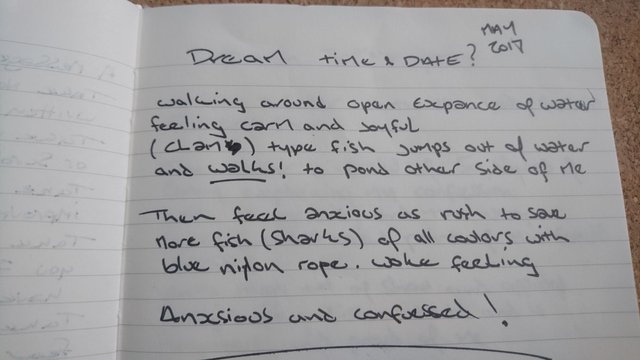 MAY
2017
Dream time & DATE?
walking around open expance of water
feeling carm and Joyful
( ) type fish Jumps out of water
and walks! to pond other side of Me
Then feel anxious as rush to save
More fish (sharks) of all coulors with
blue nylon rope. woke feeling
Anxsious and confuessed!